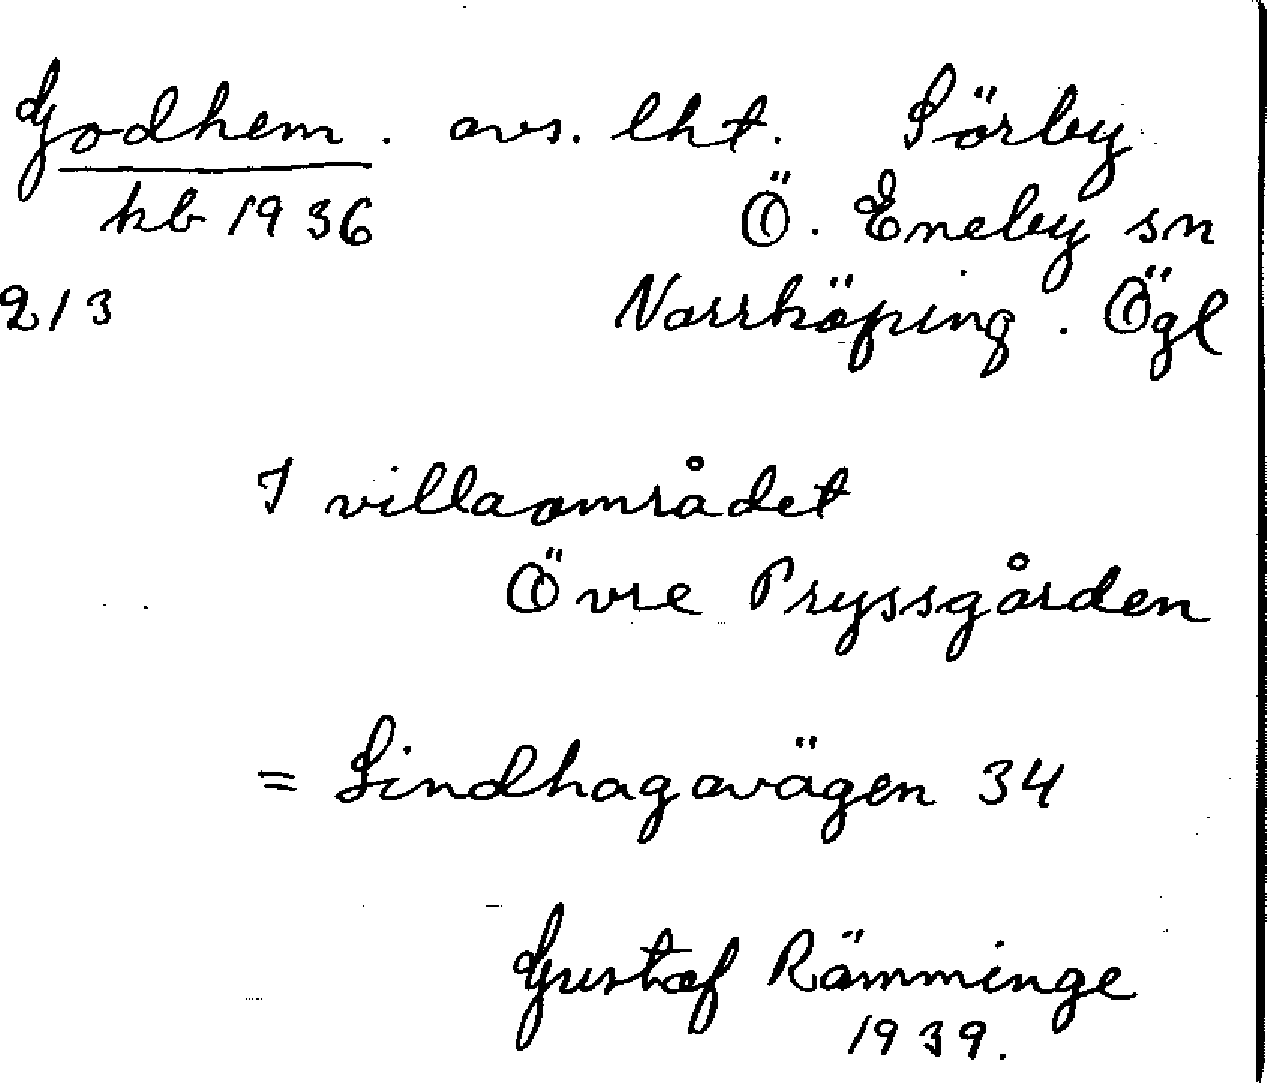 Godhem. avs. lht. Sörby
kb 1936 Ö. Eneby sn
213 Norrköping. Ögl
I villaområdet
Övre Pryssgården
= Lindhagavägen 34
Gustaf Rämminge
1939.